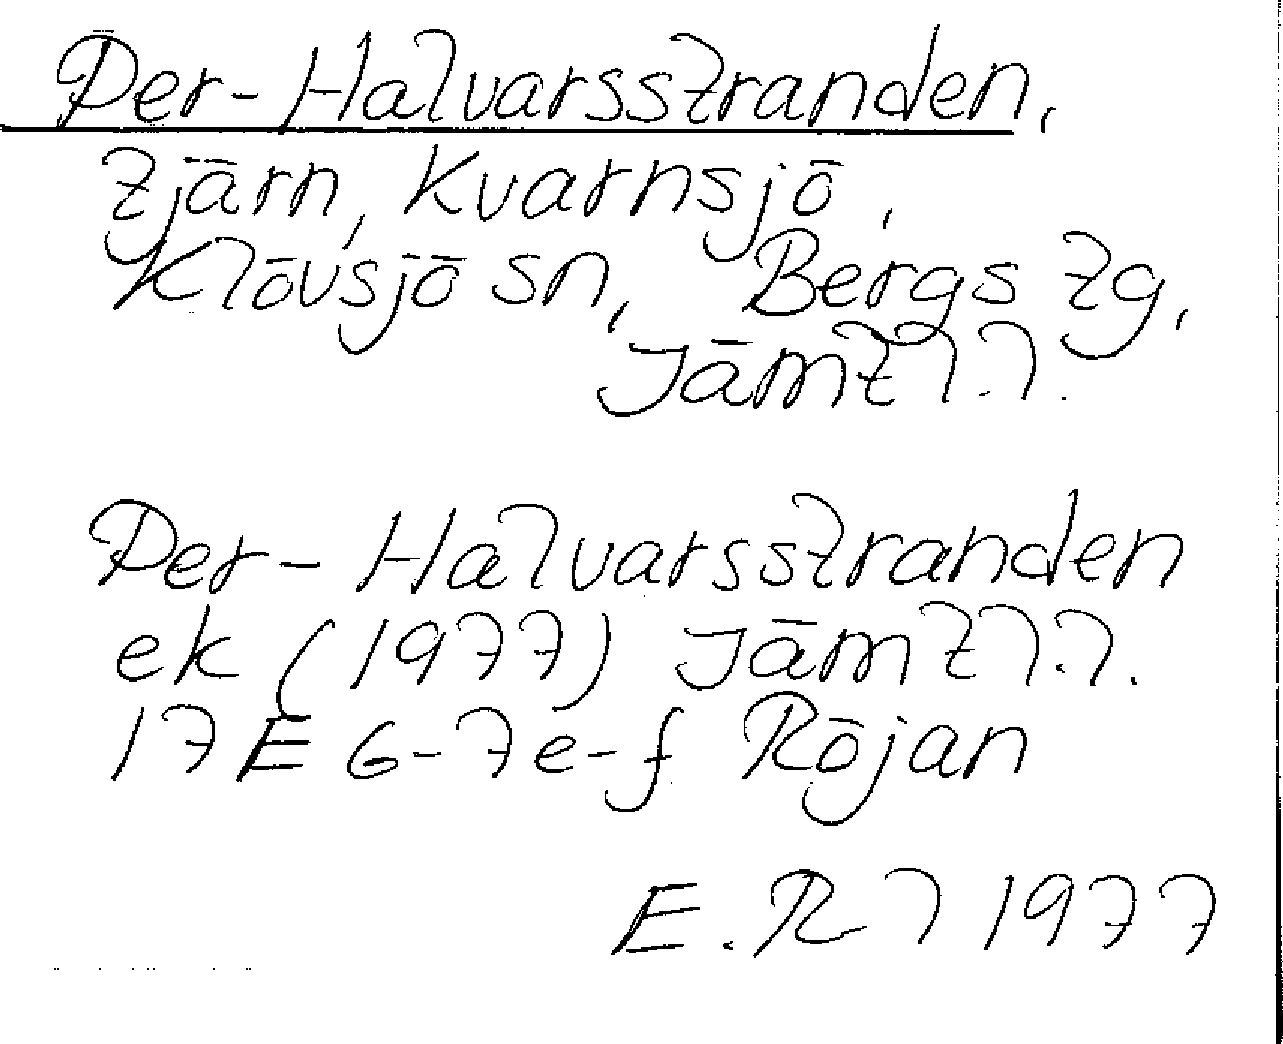 Per-Halvarsstranden,
tjärn, Kvarnsjö,
Klövsjö sn, Bergs tg,
Jämtl.l.
Per-Halvarsstranden
ek (1977) Jämtl.l.
17E 6-7e-f Röjan
E. Rl 1977